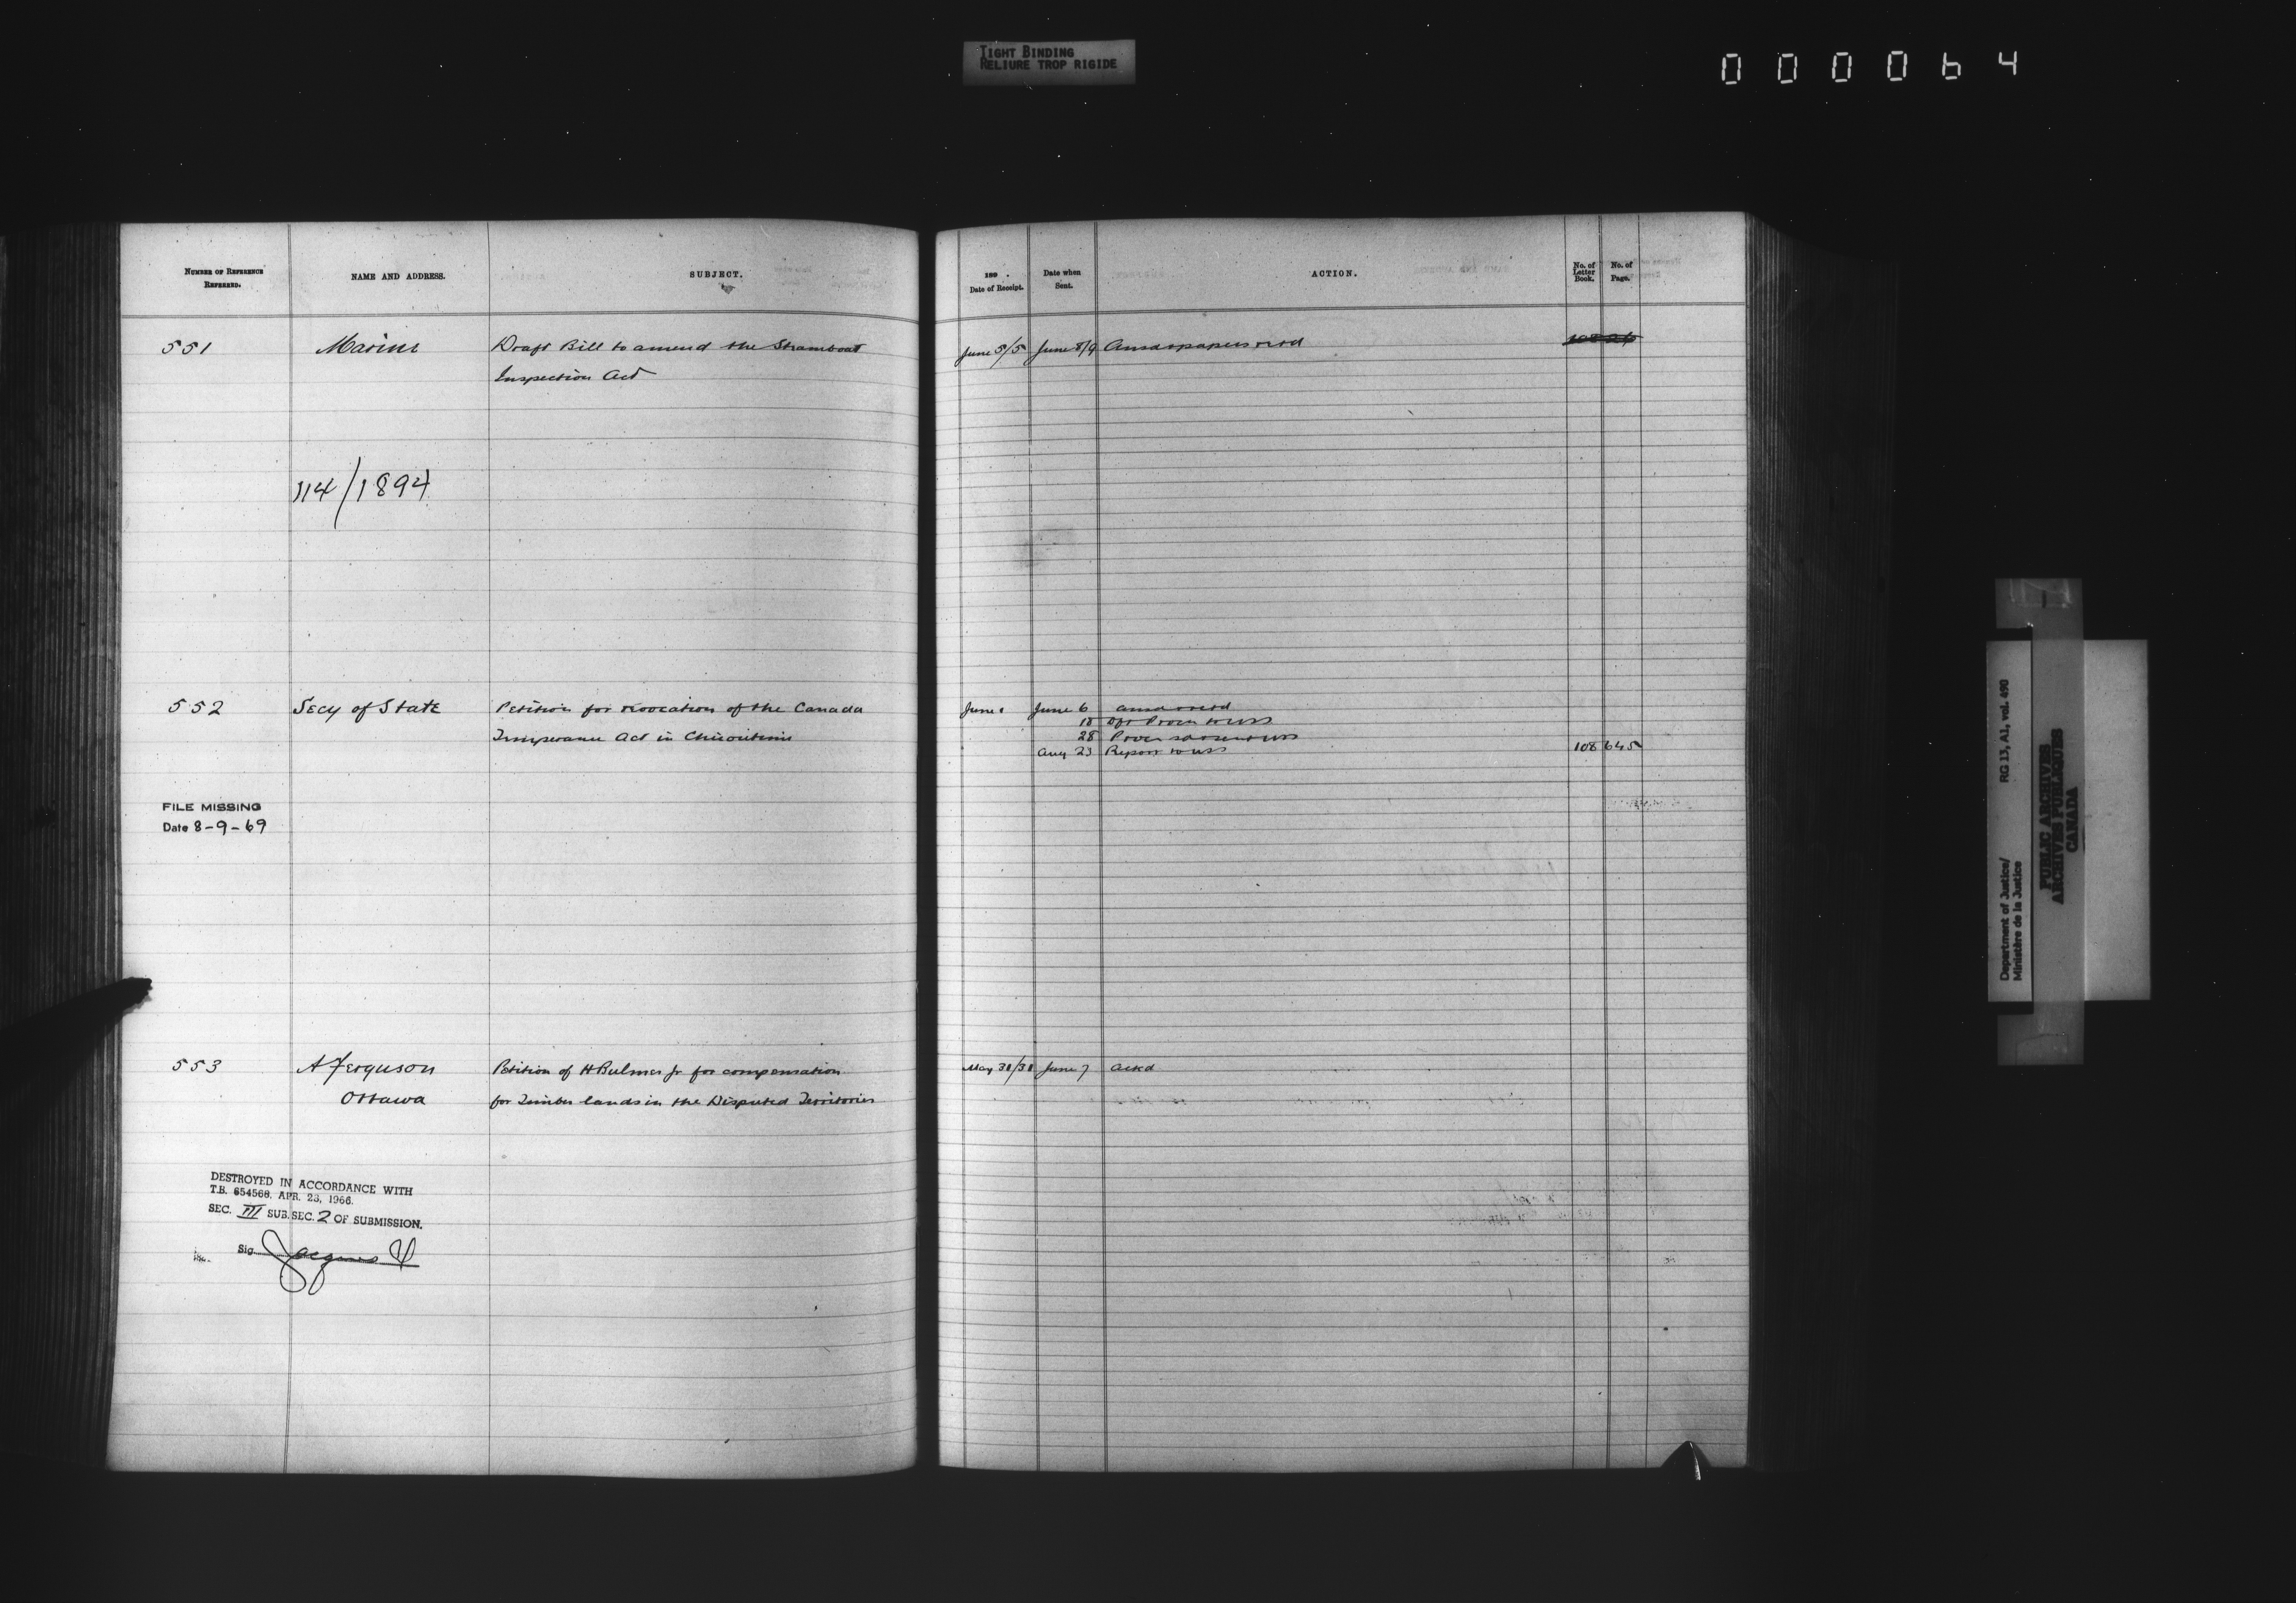 TIGHT BINDING
RELIURE TROP RIGIDE
000064
NUMBER OF REFERENCE REFERRED.
NAME AND ADDRESS.
SUBJECT.
189 .
Date of Receipt.
Date when Sent.
ACTION.
No. of Letter Book.
No. of Page.
551 Marine Draft Bill to amend the Steamboat June 5/5 June 8/9
Inspection Act
114/1894
552 Secy of State Petition for revocation of the Canada June 1 June 6
18
Temperance Act in Chicoutimi 28
Aug 23 Report to 108 645
FILE MISSING
Date 8-9-69
553 A Ferguson Petition of H Bulmer Jr for compensation May 31/31 June 7 ackd
Ottawa for Timber lands in the Disputed Territories
DESTROYED IN ACCORDANCE WITH
T.B. 654568, APR. 23, 1966.
SEC. III SUB. SEC. 2 OF SUBMISSION.
Sig. Jacques
Department of Justice/ RG 13, A1, vol. 490
Ministère de la Justice
PUBLIC ARCHIVES
ARCHIVES PUBLIQUES
CANADA